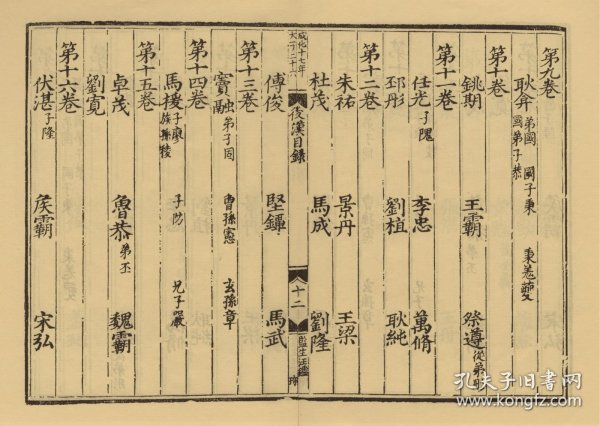 第九卷
耿弇 弟國 國子秉 秉弟夔
國弟子恭
第十卷
銚期 王霸 祭遵 從弟
第十一卷
任光 子隗 李忠 萬脩
邳彤 劉植 耿純
第十二卷
朱祐 景丹 王梁
杜茂 馬成 劉隆
成化十七年
大一千二十六
後漢目錄
十二
監生
傅俊 堅鐔 馬武
第十三卷
竇融 弟子固 曾孫憲 玄孫章
第十四卷
馬援 子廖 子防 兄子嚴
族孫稜
第十五卷
卓茂 魯恭 弟丕 魏霸
劉寬
第十六卷
伏湛 子隆 矦霸 宋弘
孔夫子旧书网
www.kongfz.com